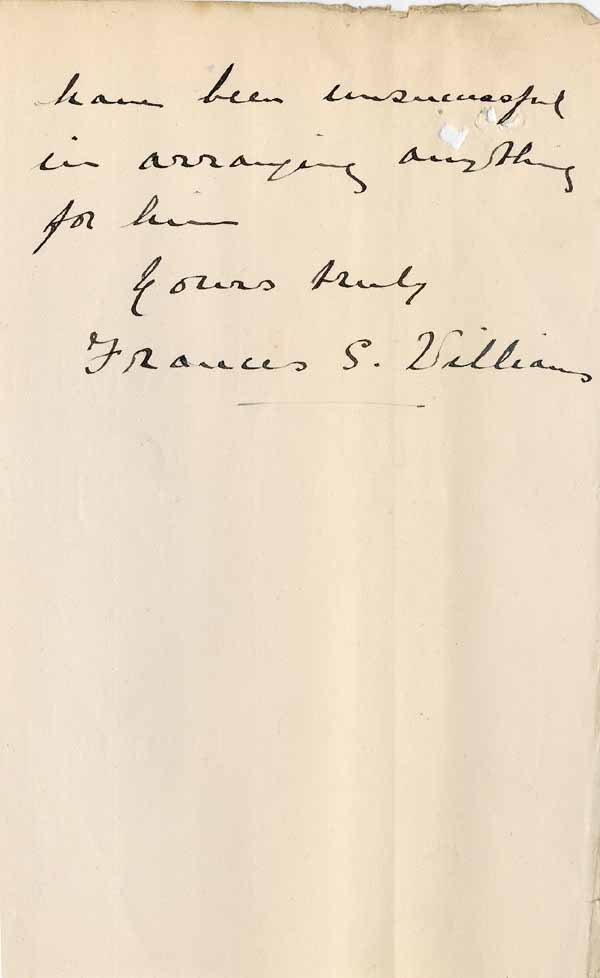 have been unsuccessful
in arranging anything
for him
Yours truly
Frances S. Williams